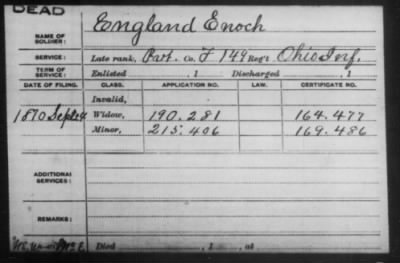 DEAD
NAME OF SOLDIER: England Enoch
SERVICE: Late rank, Pvt. Co. F 149 Reg't Ohio Inf.
TERM OF SERVICE: Enlisted , 1 Discharged , 1
DATE OF FILING. CLASS. APPLICATION NO. LAW. CERTIFICATE NO.
Invalid,
1870 Sept 14 Widow, 190.281 164.477
Minor, 215.406 169.486
ADDITIONAL SERVICES:
REMARKS:
Died , 1 , at